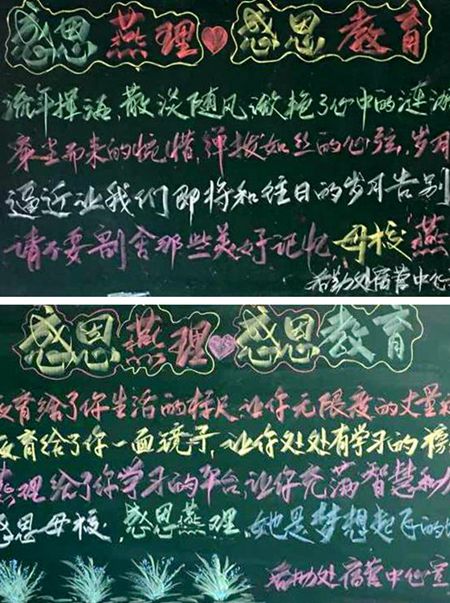 感恩燕理 感恩教育
流年挥洒,散淡随风,潋滟了心中的涟
而来的惋惜,弹拨如丝的心弦,岁月
逼近让我们即将和往日的岁月告别
请不要割舍那些美好记忆,母校燕
后勤处宿营中心
感恩燕理 感恩教育
教育给了你生活的标尺,让你无限度的丈量
教育给了你一面镜子,让你处处有学习的榜
燕理给了你学习的平台,让你充满智慧和
感恩母校,感恩燕理,她是梦想起飞的
后勤处宿营中心宣